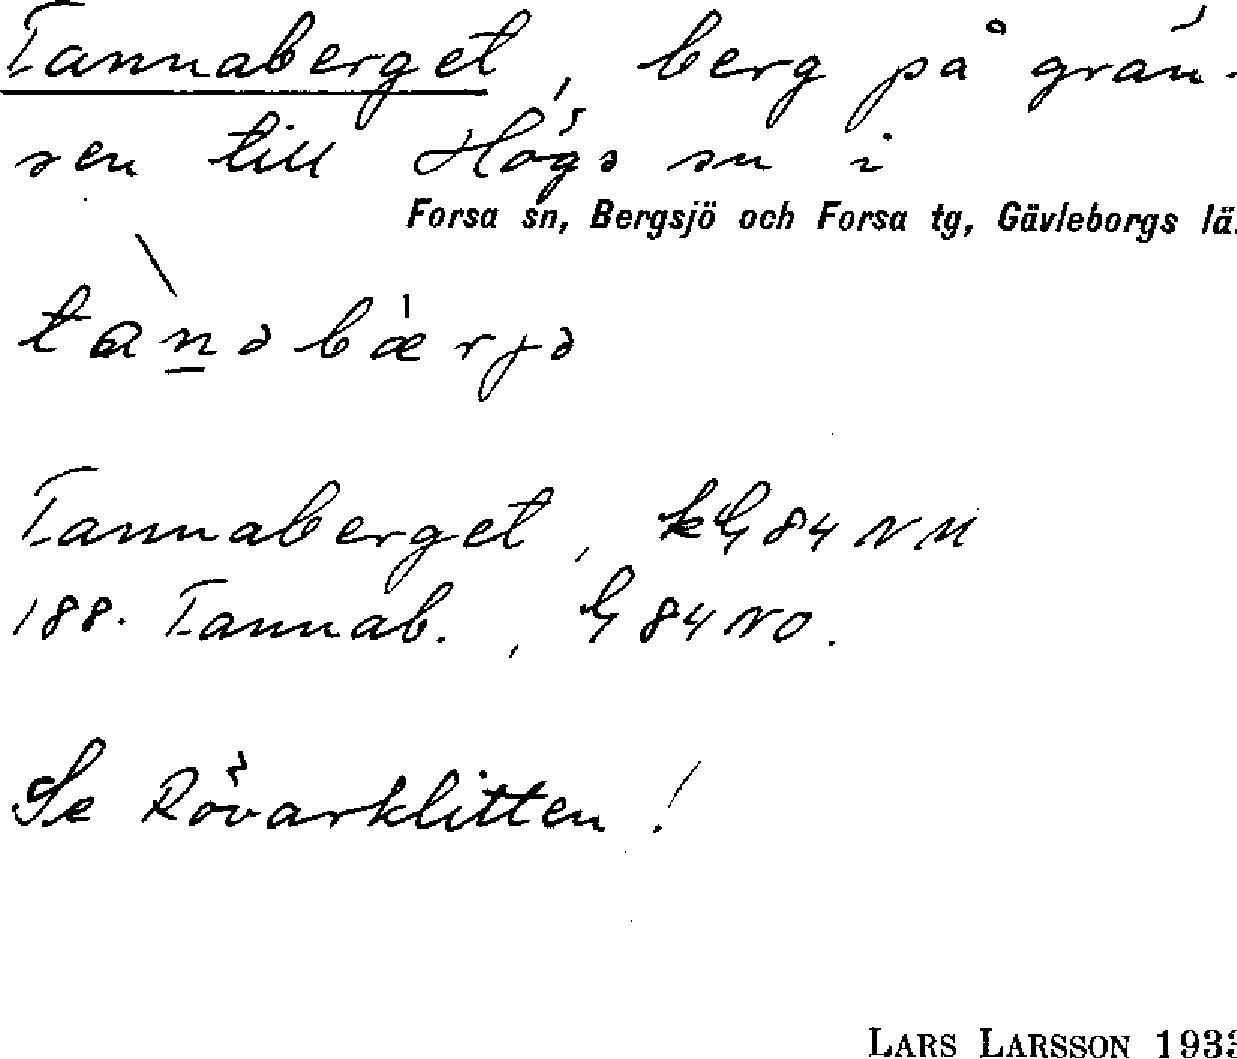 Tannaberget, berg på grän-
sen till Högs sn i
Forsa sn, Bergsjö och Forsa tg, Gävleborgs lä
tànəbæ̍rjə
Tannaberget, kG 84 NV
188. Tannab., G 84 NO.
Se Rövarklitten!
LARS LARSSON 193